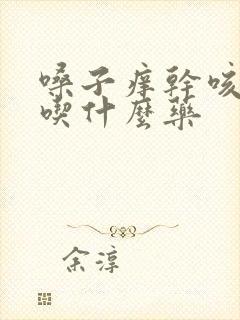 嗓子痒幹咳
喫什麽藥
余淳